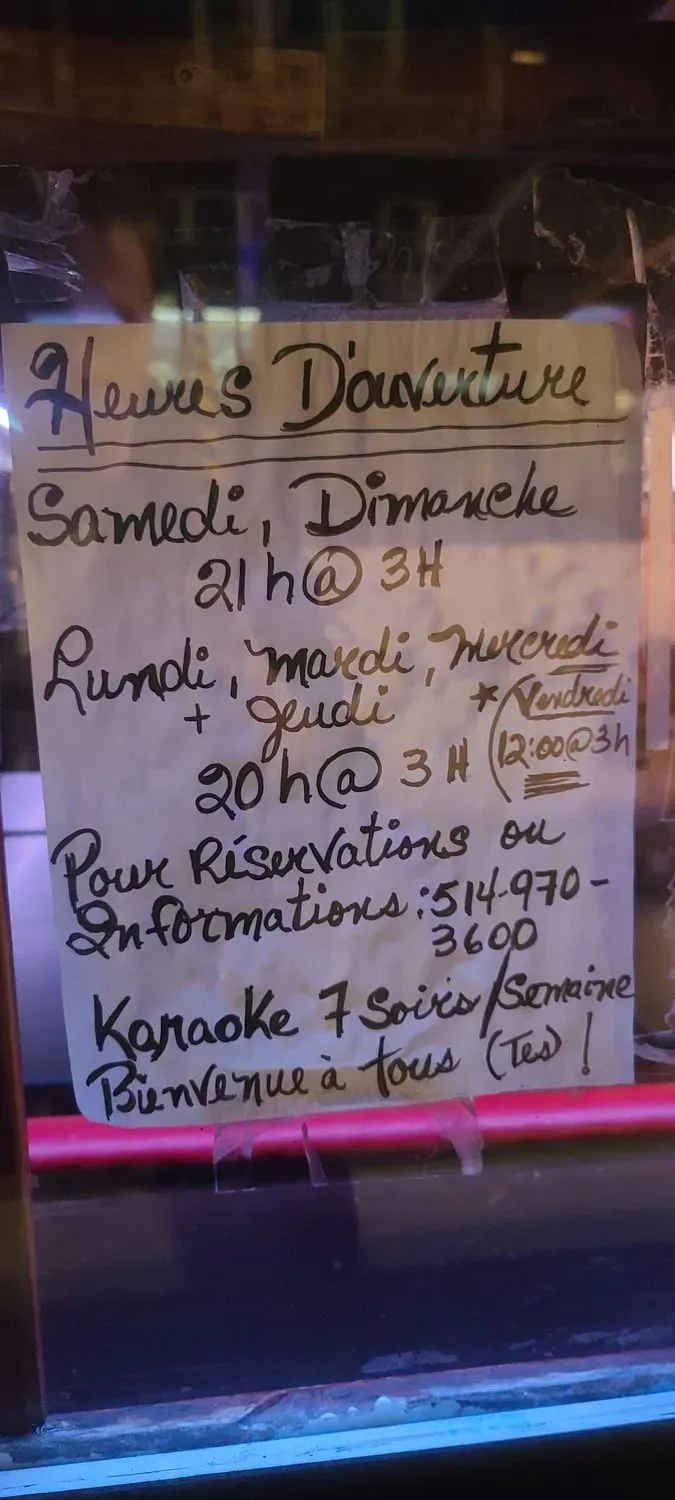 Heures D'ouverture
Samedi, Dimanche
21h@ 3H
Lundi, mardi, Mercredi
+ jeudi
* (Vendredi
20h@ 3H
12:00@3h
Pour Réservations ou
Informations: 514-970-
3600
Karaoke 7 Soirs/Semaine
Bienvenue à tous (Tes) !